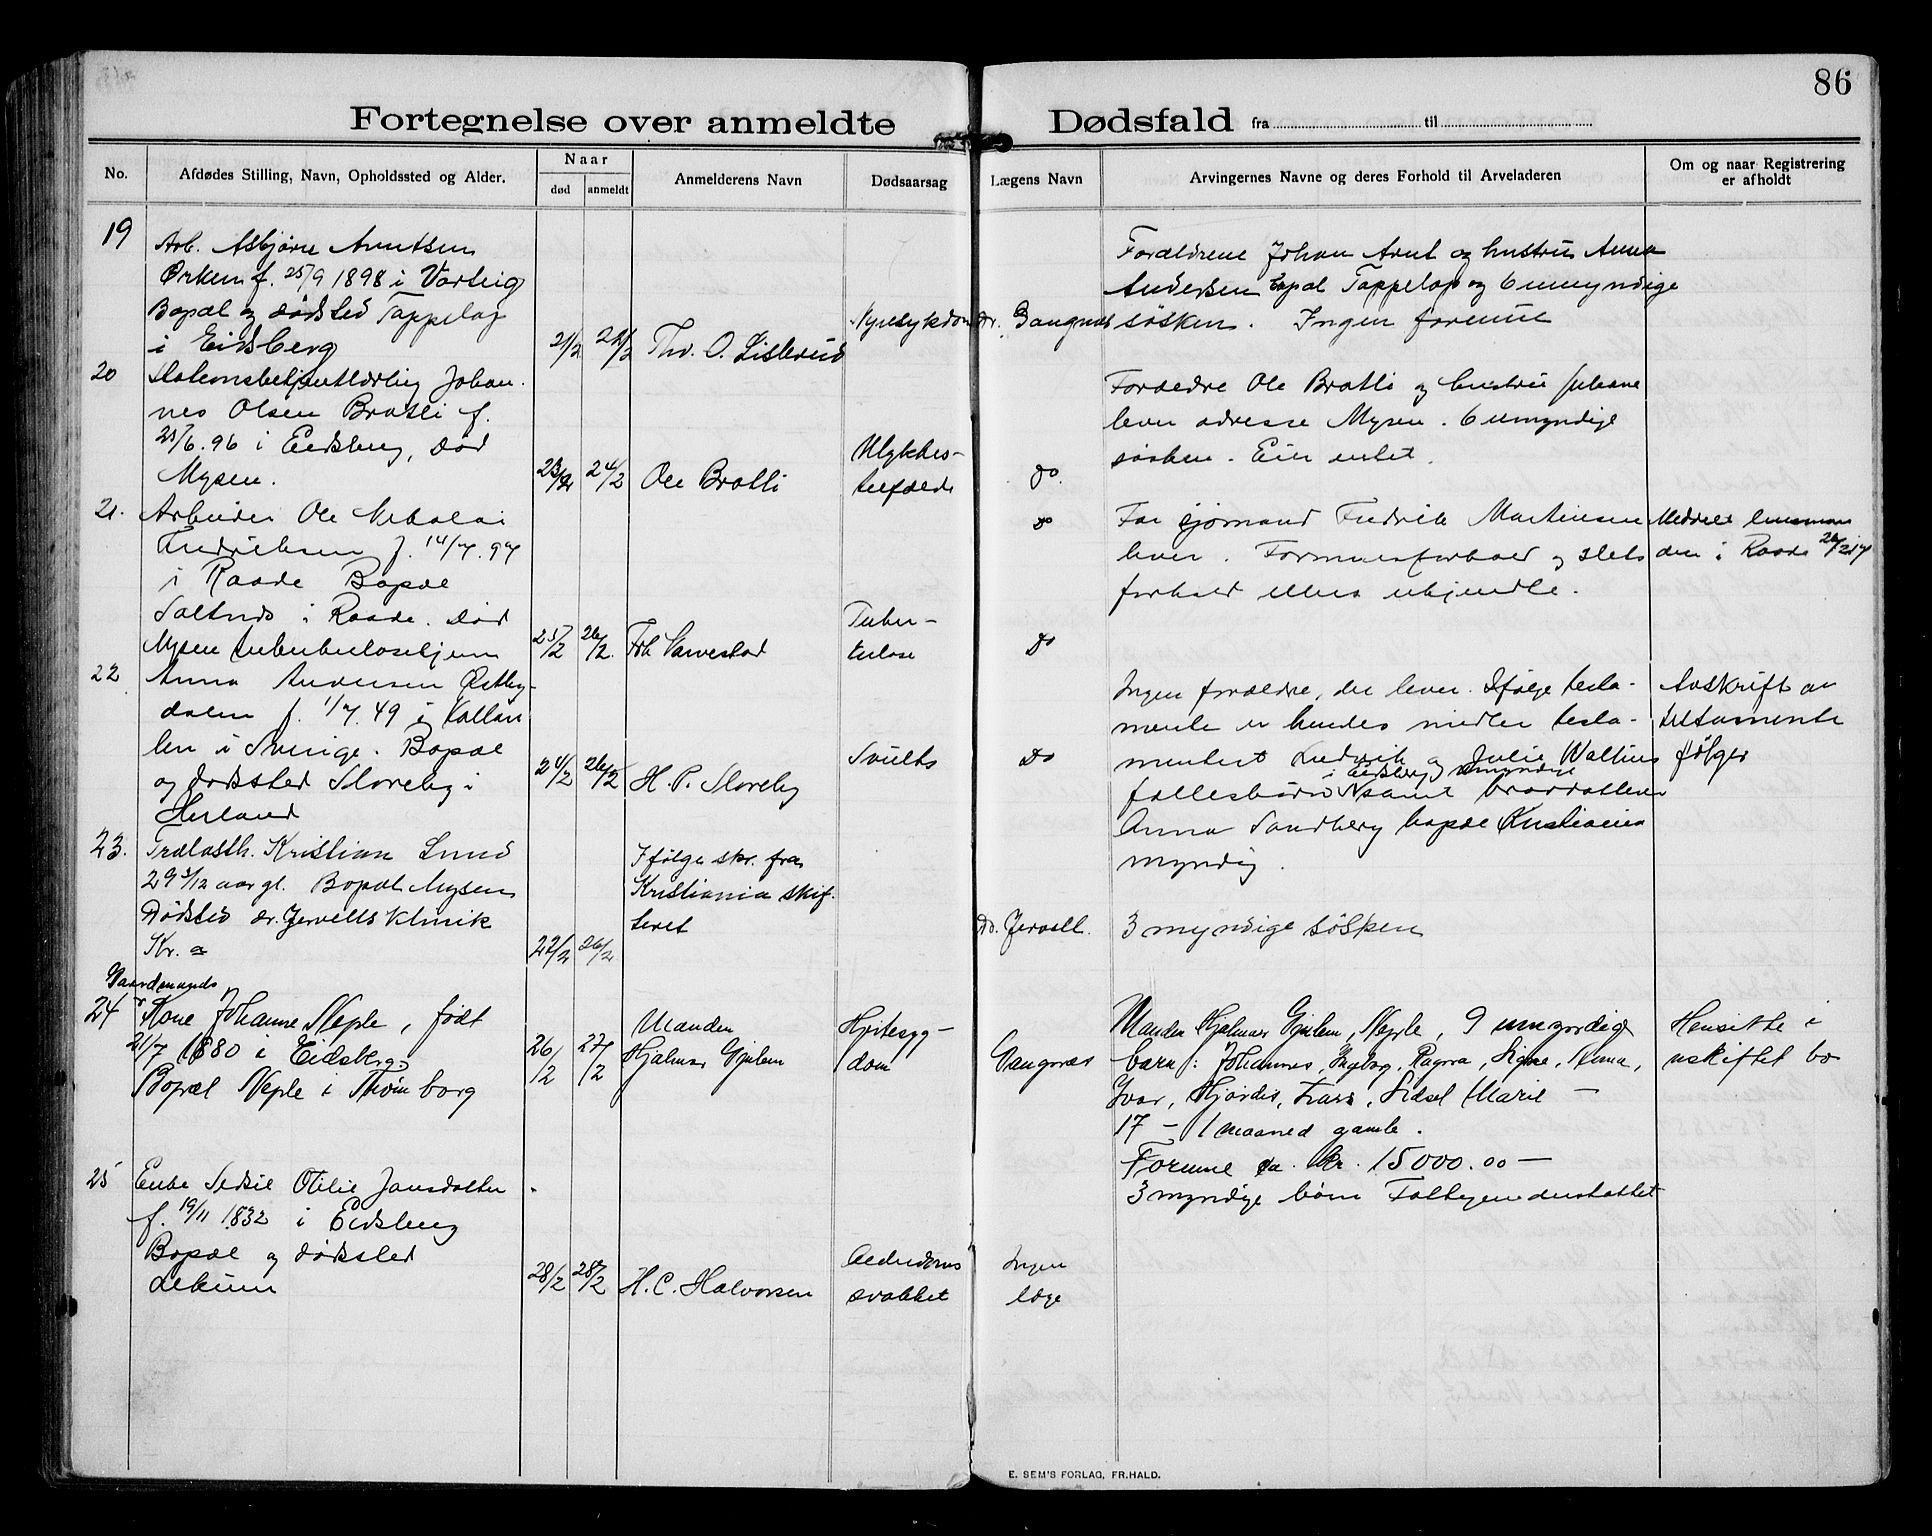 86
Fortegnelse over anmeldte Dødsfald fra til
No.
Afdødes Stilling, Navn, Opholdssted og Alder.
Naar
død
anmeldt
Anmelderens Navn
Dødsaarsag
Lægens Navn
Arvingernes Navne og deres Forhold til Arveladeren
Om og naar Registrering
er afholdt
19
Arb. Asbjørn Arntsen
Ørken f. 25/9 1898 i Varteig
Bopæl og dødsted Tappelap
i Eidsberg
21/2
Thv. O. Listerud
Nyresykdom
dr. Gangnæs
Forældrene Johan Arnt og hustru Anna
Andersen Bopæl Tappelap og 6 umyndige
søsken. Ingen formue
20
Stationsbetjentlærling Johan-
nes Olsen Bratli f.
25/6.96 i Eidsberg, død
Mysen.
23/2
24/2
Ole Bratli
Ulykkes-
tilfælde
do.
Forældre Ole Bratli og hustru Juliane
lever adresse Mysen. 6 umyndige
søsken. Eier intet.
21.
Arbeider Ole Nikolai
Fredriksen f. 14/7.97
i Raade Bopæl
Saltnes i Raade. Død
Mysen tuberkulosehjem
25/2
26/2
Tuber-
kulose
do
do
Far sjømand Fredrik Martinsen
lever. Formuesforhold og slets
forhold ellers ukjendte.
Meddelt lensman
den i Raade 26/2 17
22
Anna Andersen Østby-
dalen f. 1/7.49 i
i Sverige. Bopæl
og dødssted Sloreby i
Herland
24/2
26/2
H. P. Sloreby
Svulst
do
Ingen forældre, der lever. Ifølge testa-
mente er hendes midler testa-
mentert Fredrik og Julie Waltins
i Eidsberg umyndige
fællesbørn samt brordatteren
Anna Sandberg bopæl Kristiania
myndig.
Avskrift av
testamente
følger
23.
Trælasth. Kristian Lund
29 3/12 aar gl. Bopæl Mysen
Dødsted dr. Jervells klinik
Kr. a
22/2
26/2
Ifølge skr. fra
Kristiania skif-
teret
Dr. Jervell.
3 myndige søsken
24
Gaardmands
Kone Johanne Neple, født
21/7 1880 i Eidsberg
Bopæl Neple i Trømborg
26/2
27/2
Manden
Hjalmar Gjulem
Hjertesyg-
dom
Gangnæs
Manden Hjalmar Gjulem, Neple, 9 umyndige
barn: Johannes, Ingeborg, Ragna, Signe, Anna,
Ivar, Hjørdis, Frans, Sidsel Marie —
17 – 1 maaned gamle.
Formue ca. kr. 15000.00 —
Hensitte i
uskiftet bo
25
Enke Sedsil Otilie Jansdatter
f. 19/11 1832 i Eidsberg
Bopæl og dødssted
Lekum
28/2
28/2
H. C. Halvorsen
Alderdoms
svakhet
Ingen
læge
3 myndige børn Fattigunderstøttet
E. SEM'S FORLAG, FR.HALD.